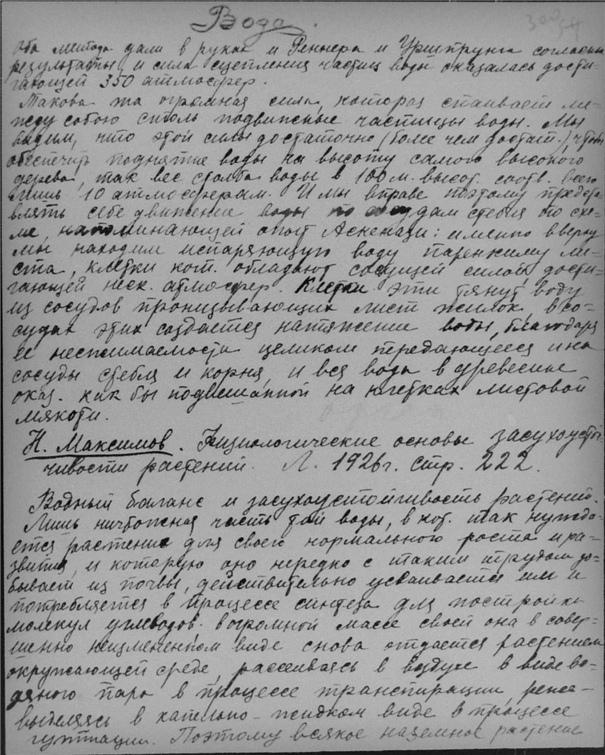 Вода.
Оба метода дали в руках и Реннера и Уршпрунга согласные
результаты, и сила сцепления частиц воды оказалась дости-
гающей 350 атмосфер.
Такова та огромная сила, которая стаивает ме-
жду собою столь подвижные частицы воды. Мы
видим, что этой силы достаточно (более чем достат.), чтобы
обеспечить поднятие воды на высоту самого высокого
дерева, так вес столба воды в 100 м. высот. соотв. всего
лишь 10 атмосферам. И мы вправе поэтому предста-
влять себе движение воды по сосудам стебля по схе-
ме, напоминающей опыт Аскенази: именно вверху
мы находим испаряющую воду паренхиму ли-
ста, клетки кот. обладают сосущей силой, дости-
гающей неск. атмосфер. Клетки эти тянут воду
из сосудов пронизывающих лист жилок, в со-
судах этих создается натяжение воды, благодаря
ее несжимаемости целиком передающееся и на
сосуды стебля и корня, и вся вода в древесине
оказ. как бы подвешанной на клетках листовой
мякоти.
Н. Максимов. Физиологические основы засухоустой-
чивости растений. Л. 1926 г. стр. 222.
Водный баланс и засухоустойчивость растений.
Лишь ничтожная часть той воды, в кот. так нужда-
ется растение для своего нормального роста и ра-
звития, и которую оно нередко с таким трудом до-
бывает из почвы, действительно усваивается им и
потребляется в процессе синтеза для постройки
молекул углеводов. в огромной массе своей она в совер-
шенно неизмененном виде снова отдается растением
окружающей среде, рассеиваясь в воздухе в виде во-
дяного пара в процессе транспирации, реже
выделяясь в капельно-жидком виде в процессе
гуттации. Поэтому всякое наземное растение